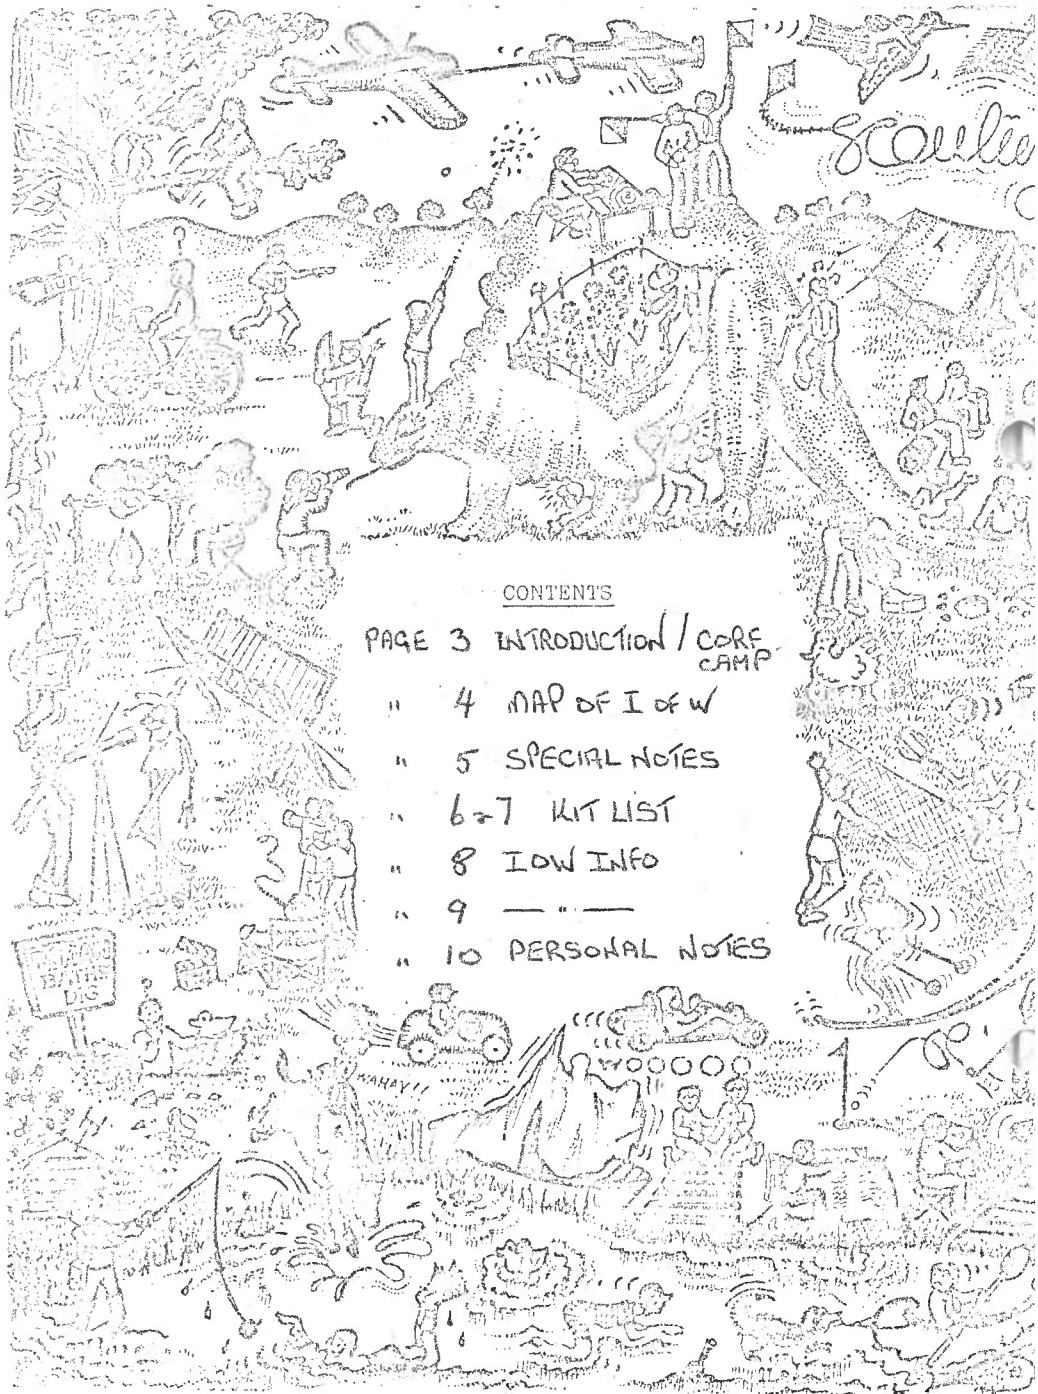 scouting
CONTENTS
PAGE 3 INTRODUCTION / CORF
CAMP
" 4 MAP OF I OF W
" 5 SPECIAL NOTES
" 6-7 KIT LIST
" 8 IOW INFO
" 9 — " —
" 10 PERSONAL NOTES
DIG
WAHAY!!
WOOOOO